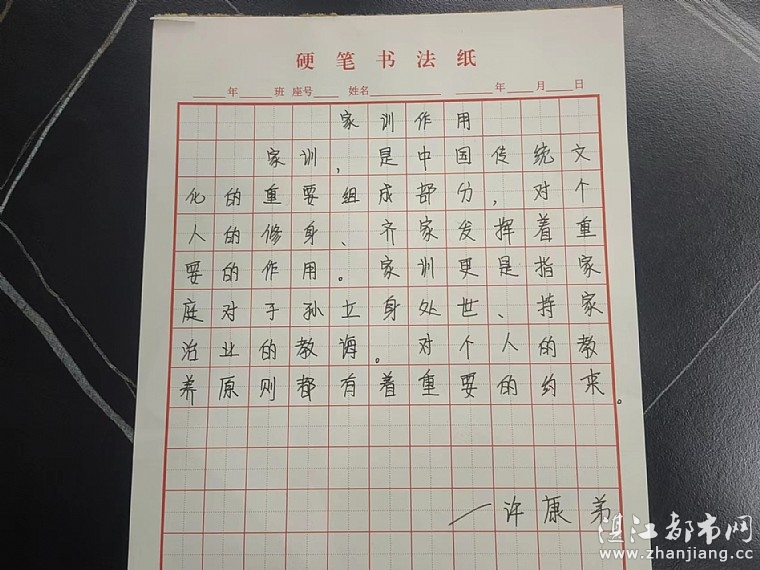 硬笔书法纸
年 班 座号 姓名 年 月 日
家训作用
家训，是中国传统文
化的重要组成部分，对个
人的修身、齐家发挥着重
要的作用。家训更是指家
庭对于孙立身处世、持家
治业的教诲。对个人的教
养原则都有着重要的约束。
一许康弟
湛江都市网
www.zhanjiang.cc